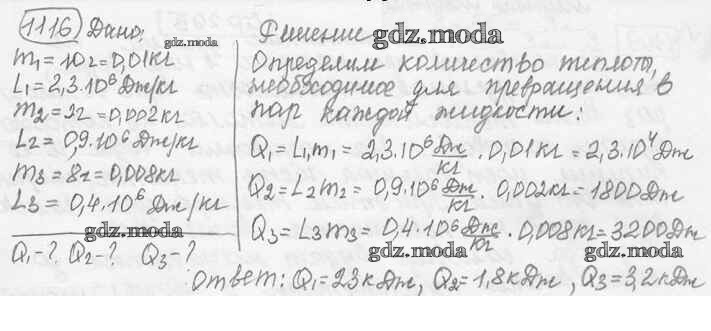 1116 Дано:
gdz.moda
m₁ = 10г = 0,01кг
L₁ = 2,3·10⁶ Дж/кг
m₂ = 2г = 0,002кг
L₂ = 0,9·10⁶ Дж/кг
m₃ = 8г = 0,008кг
L₃ = 0,4·10⁶ Дж/кг
gdz.moda
Q₁-? Q₂-? Q₃-?
Решение
gdz.moda
Определим количество теплоты,
необходимое для превращения в
пар каждой жидкости:
Q₁ = L₁m₁ = 2,3·10⁶ Дж/кг · 0,01кг = 2,3·10⁴ Дж
Q₂ = L₂m₂ = 0,9·10⁶ Дж/кг · 0,002кг = 1800Дж
Q₃ = L₃m₃ = 0,4·10⁶ Дж/кг · 0,008кг = 3200Дж
gdz.moda gdz.moda
Ответ: Q₁ = 23кДж, Q₂ = 1,8кДж, Q₃ = 3,2кДж